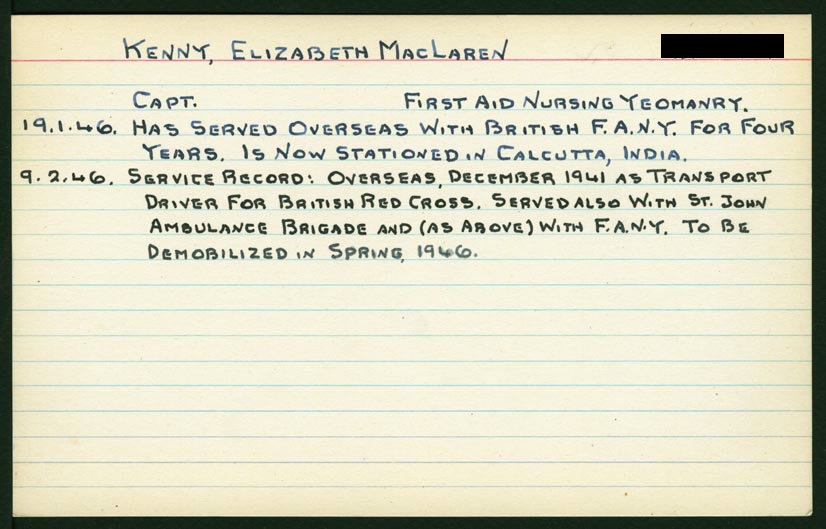 KENNY, ELIZABETH MACLAREN
CAPT. FIRST AID NURSING YEOMANRY.
19.1.46. HAS SERVED OVERSEAS WITH BRITISH F.A.N.Y. FOR FOUR
YEARS. IS NOW STATIONED IN CALCUTTA, INDIA.
9.2.46. SERVICE RECORD: OVERSEAS, DECEMBER 1941 AS TRANSPORT
DRIVER FOR BRITISH RED CROSS. SERVED ALSO WITH ST. JOHN
AMBULANCE BRIGADE AND (AS ABOVE) WITH F.A.N.Y. TO BE
DEMOBILIZED IN SPRING, 1946.